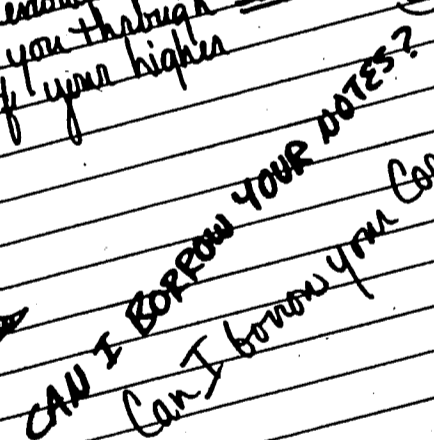 you through
your higher
CAN I BORROW YOUR NOTES?
Can I borrow your